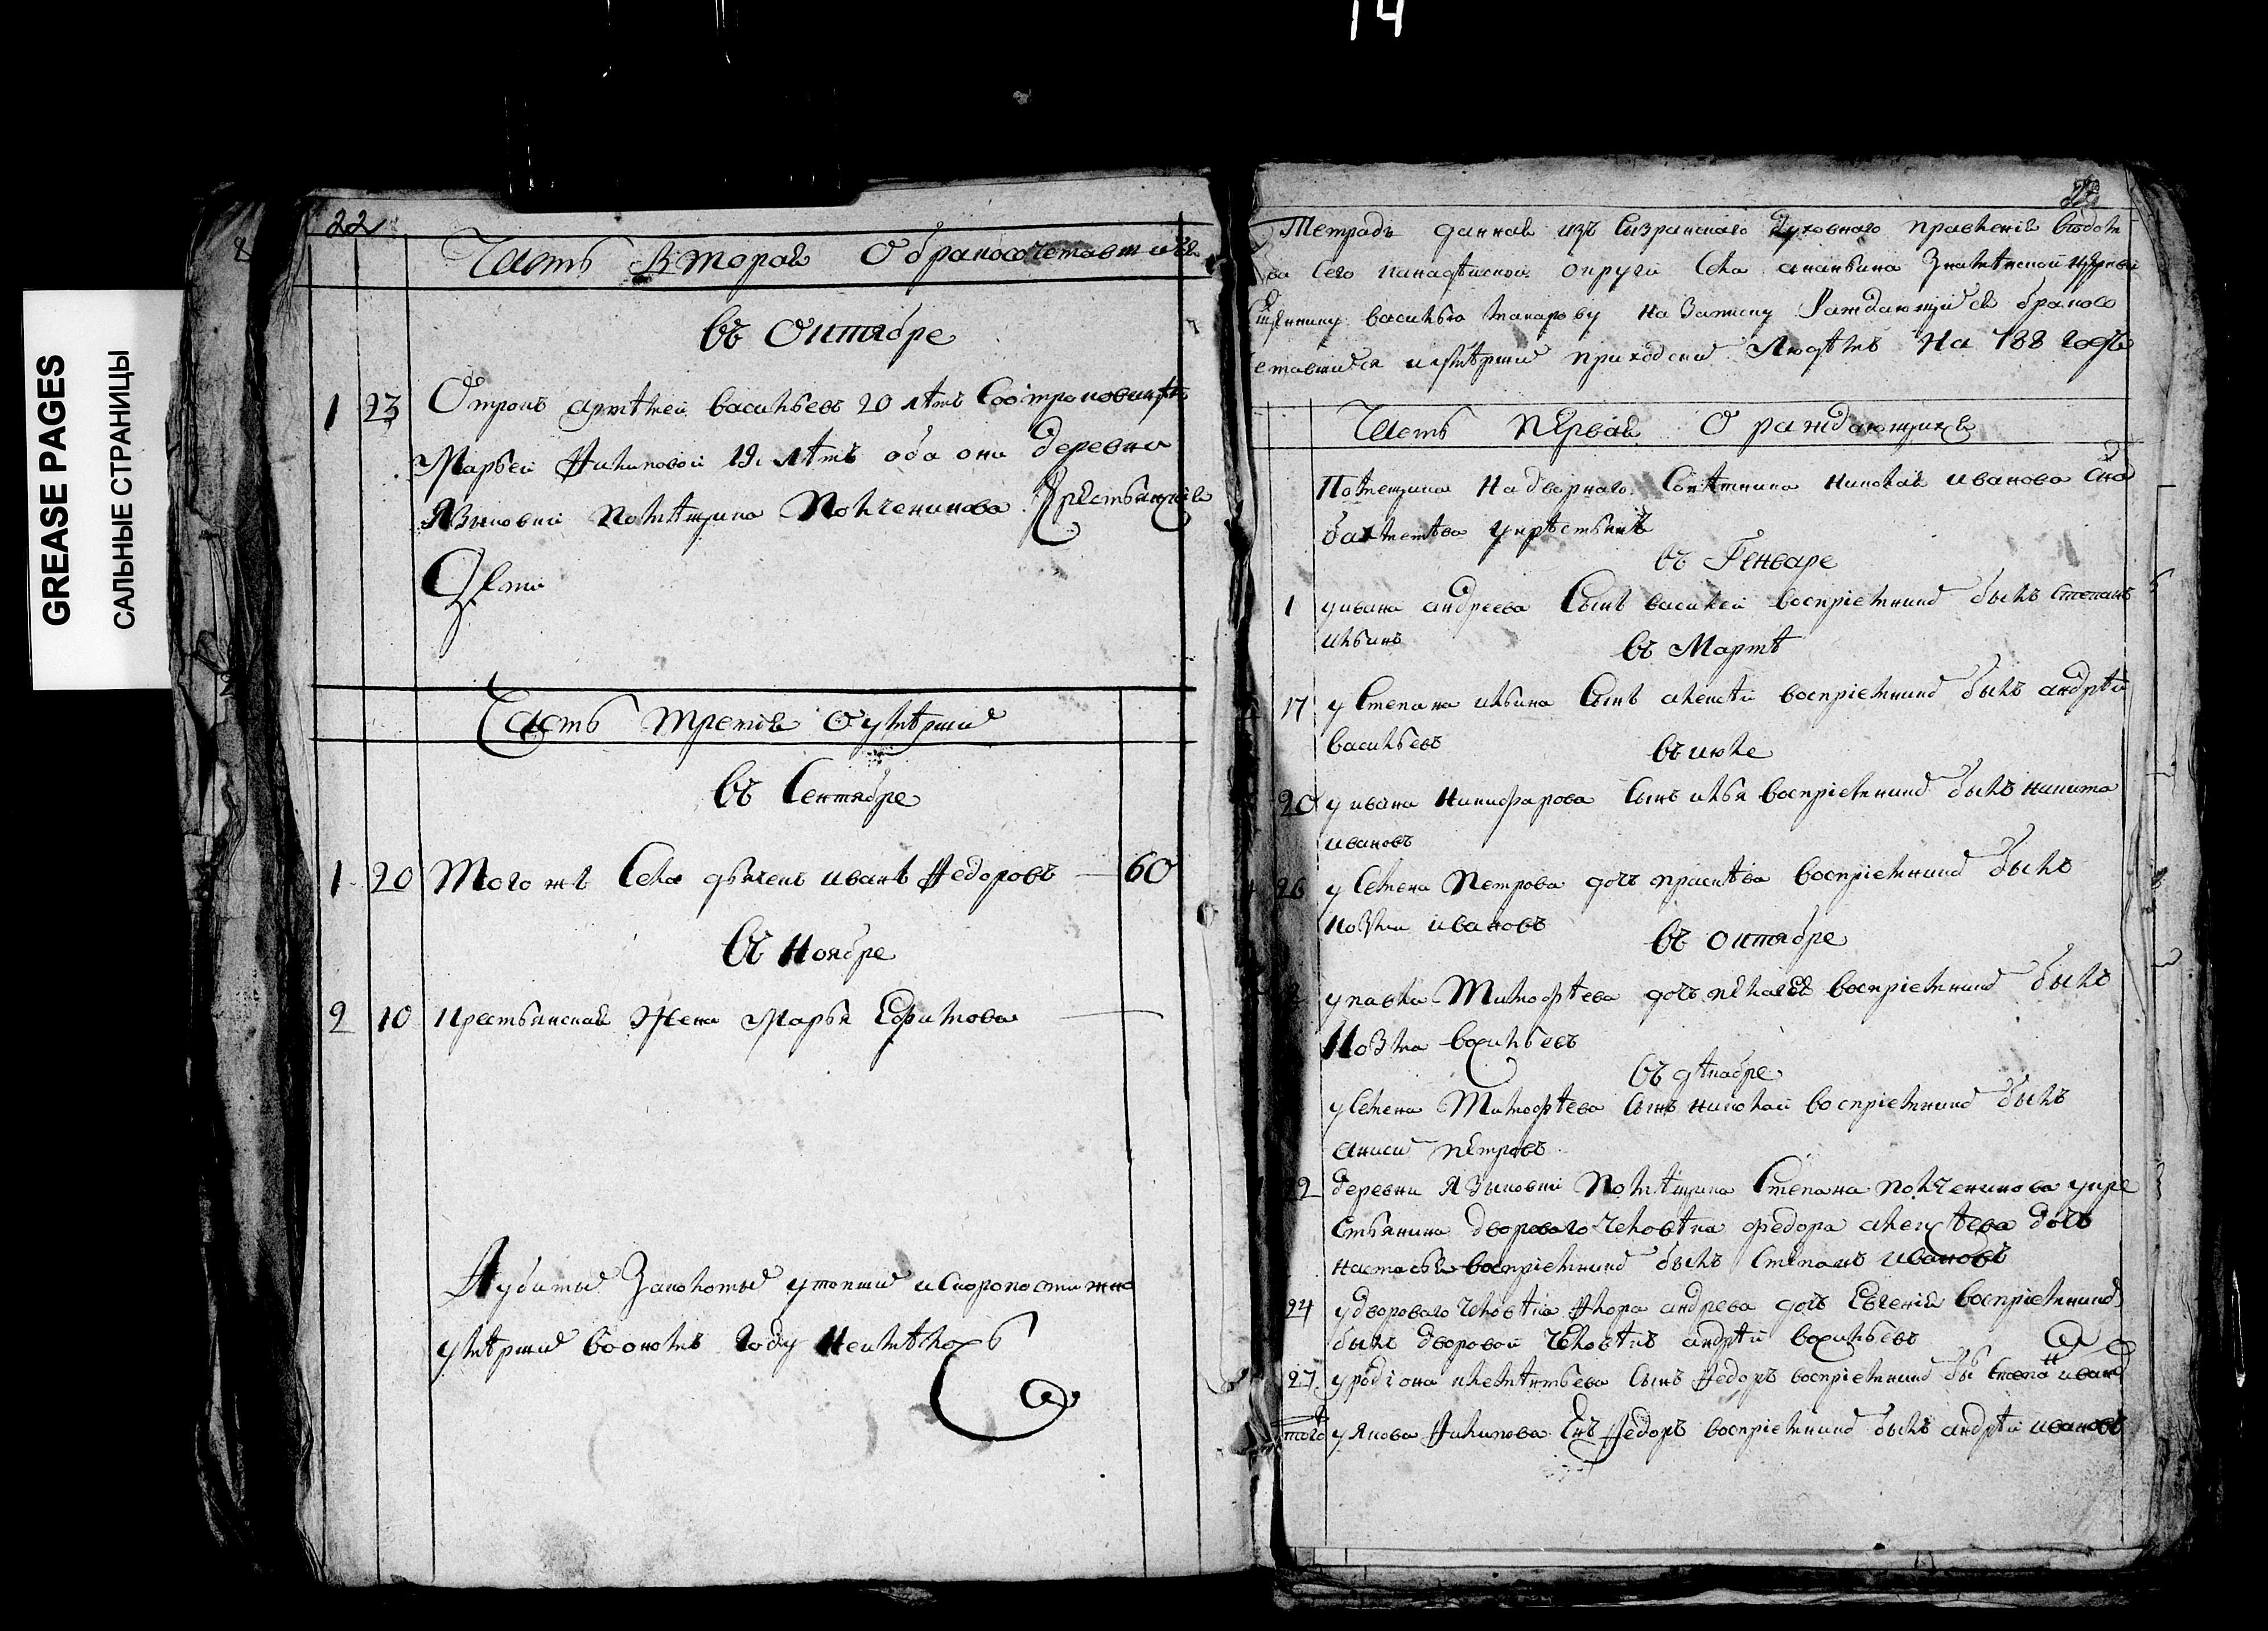 14
GREASE PAGES
САЛЬНЫЕ СТРАНИЦЫ
22
Часть Вторая О бракосочетавшихся
въ Октябре
1 23 Отрокъ артемей васильевъ 20 летъ
Марьей Филиповой 19 летъ оба они деревни
Языковки Помѣщика Полченинова крестьянския
Дети
Часть третия О умѣрших
въ Сентябре
1 20 Того жъ Села дьячекъ иванъ Федоровъ 60
въ Ноябре
2 10 крестьянская Жена Марья Ефимова
А убитых Заколотых утопших и скоропостижно
умѣрших во ономъ году Неимѣлось
Тетрадь данная изъ Сызранскаго Духовнаго правления
Сего канадѣйской округи Села ананьина Знамѣнской церкви
василью макарову на Записку Раждающихся бракосо
четавшихся и умѣрших приходских Людѣмъ На 788 годъ
Часть пѣрвая О раждающихся
Помещика Надворнаго Советника николая иванова Сна
бахметѣва у крѣстьянъ
въ Генваре
1 у ивана андреева Сынъ василей восприемник былъ степанъ
ильинъ
въ Мартѣ
17 у Степана ильина Сынъ алексѣй восприемник былъ андрѣй
васильевъ
въ июле
20 у ивана Никифарова Сынъ илья восприемник былъ никита
ивановъ
26 у Семена Петрова дочь праскѣва восприемник былъ
козма ивановъ
въ октябре
у павла Тимофѣева дочь пелагѣя восприемник былъ
Козма васильевъ
въ дѣкабре
у Семена Тимофѣева Сынъ николай восприемник былъ
аниси пѣтровъ
деревни Языковки Помѣщика Степана полченинова у кре
стьянина двороваго человѣка федора алексѣева дочь
настасья восприемник былъ Степанъ ивановъ
24 у двороваго человѣка Флора андрева дочь Евгения восприемник
былъ дворовой человѣкъ андрѣй васильевъ
27 у родиона клемѣнтьева Сынъ Федоръ восприемник бы степа иванъ
того у якова Филипова Снъ Федоръ восприемник былъ андрѣй ивановъ